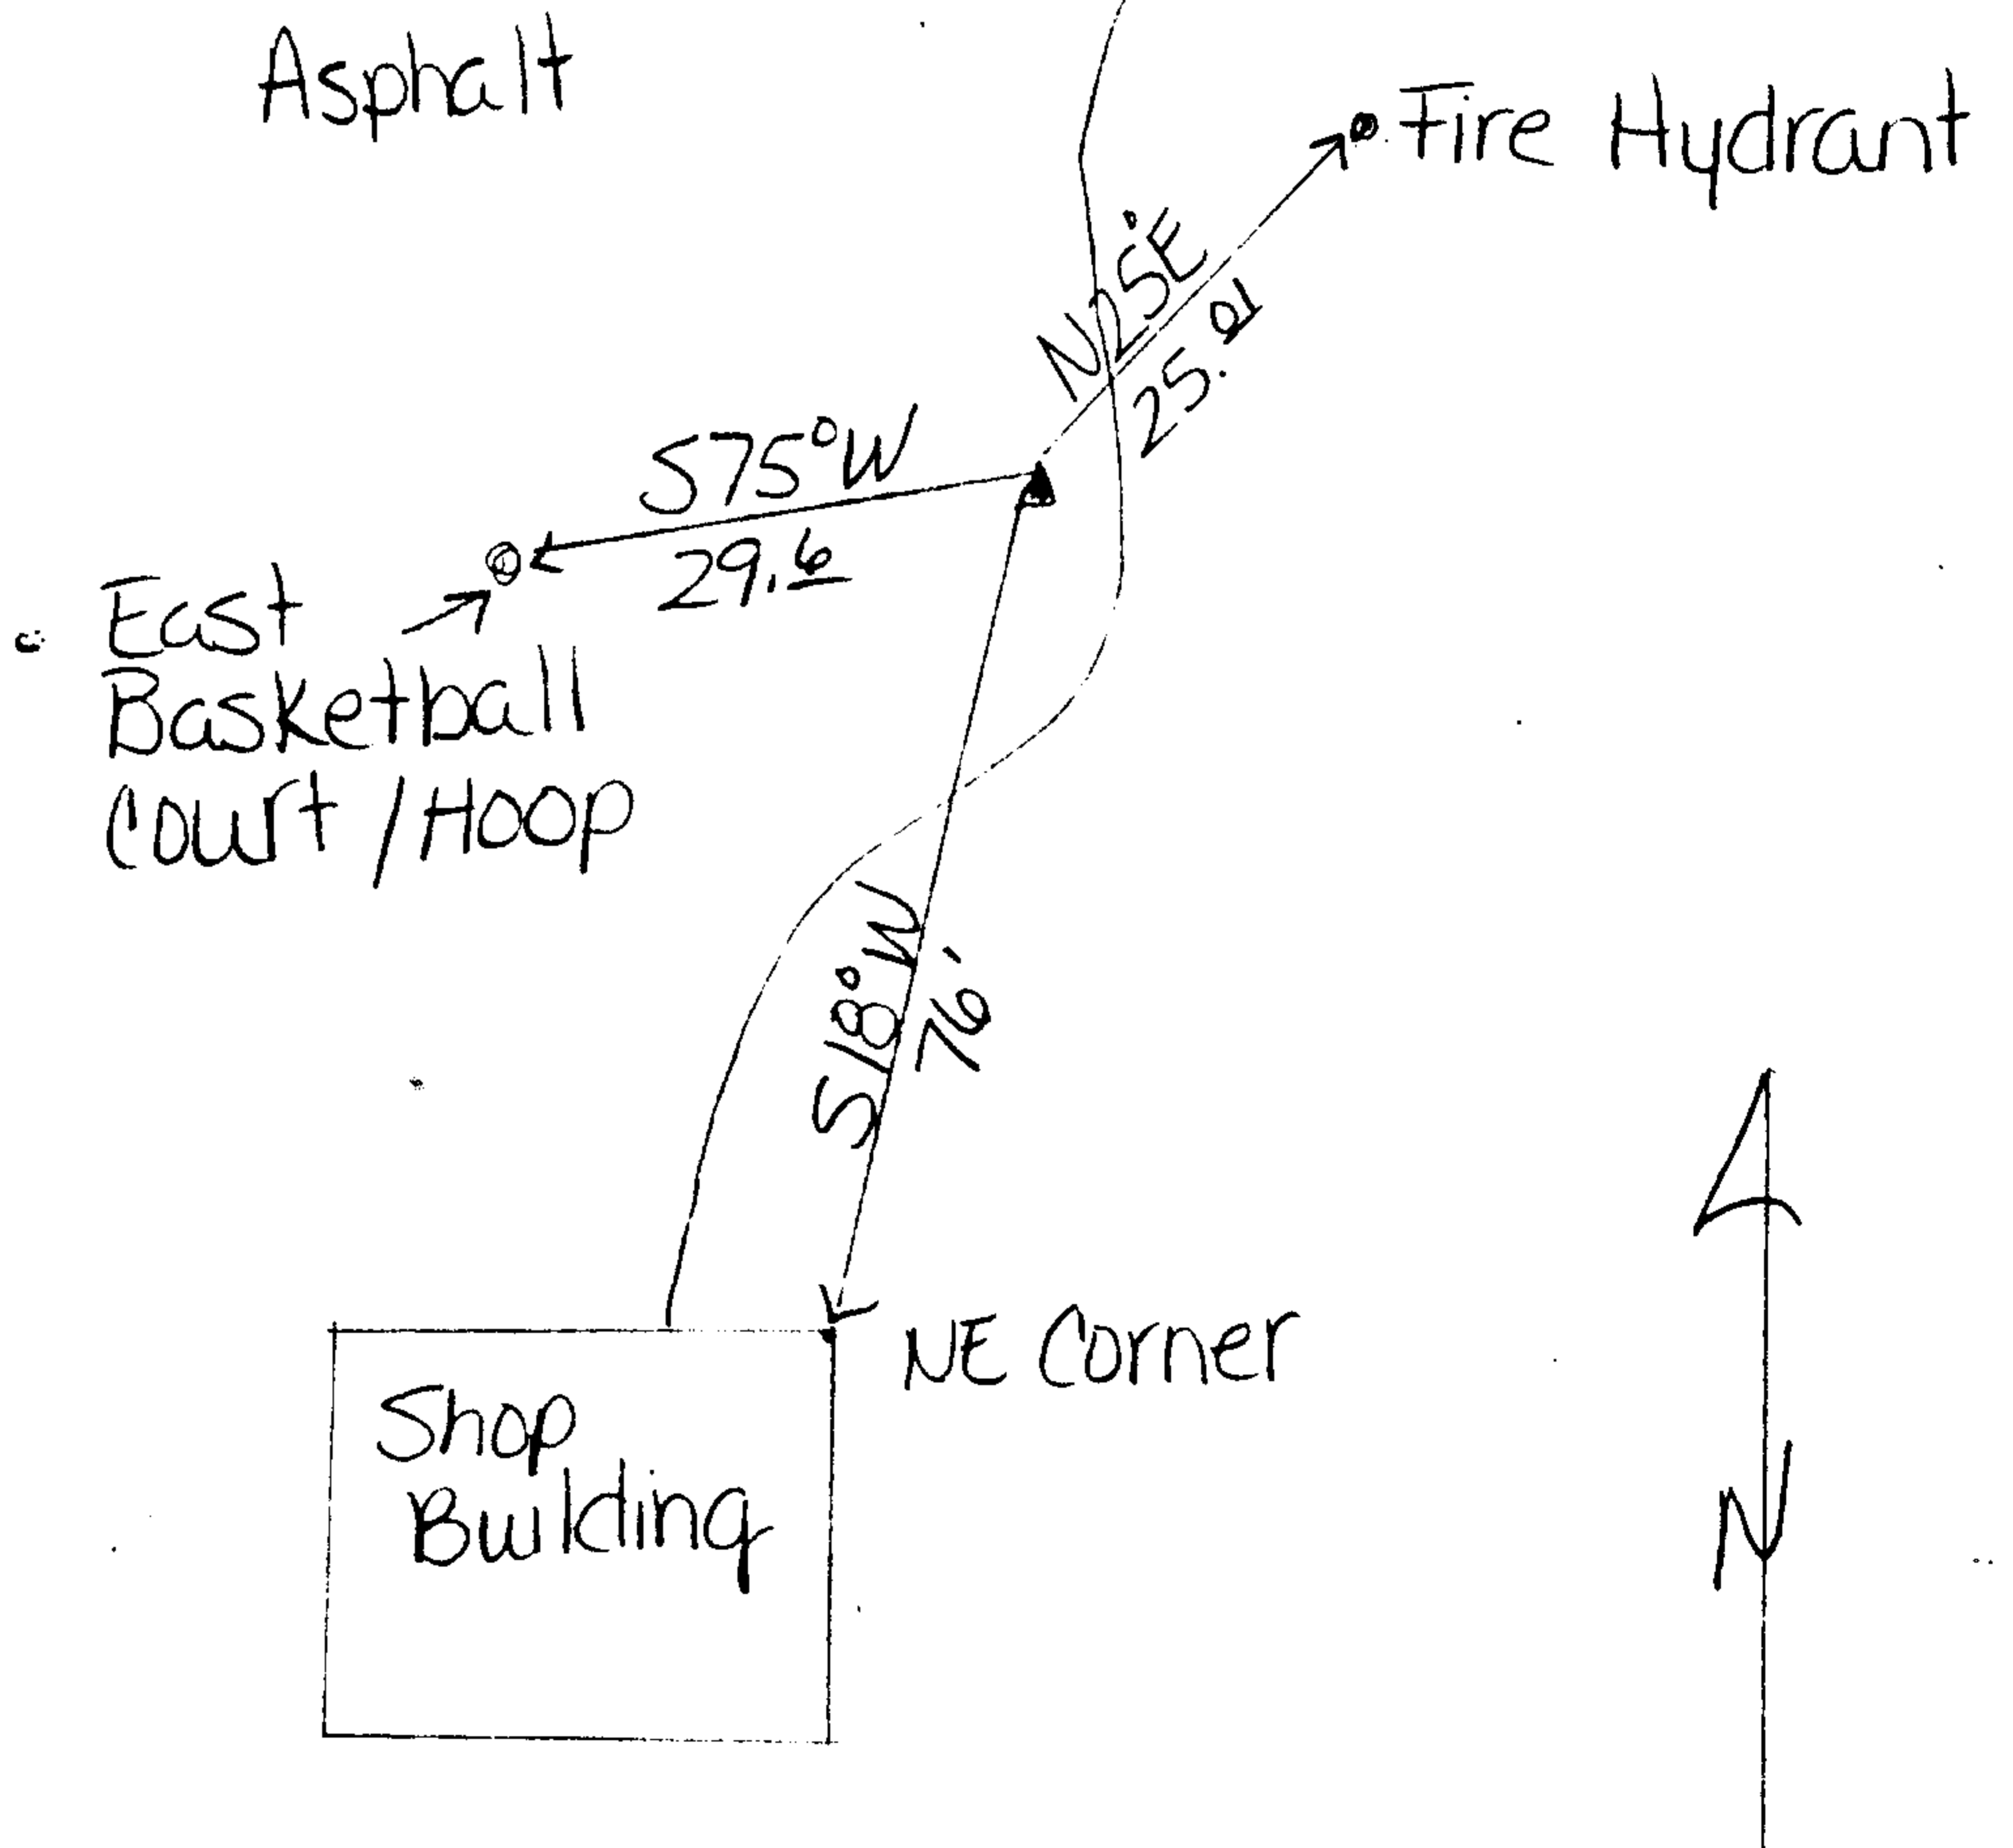 Asphalt
Fire Hydrant
N25°E
S75°W
29.6
East
Basketball
Court / Hoop
S18°W
76'
NE Corner
Shop
Building
N